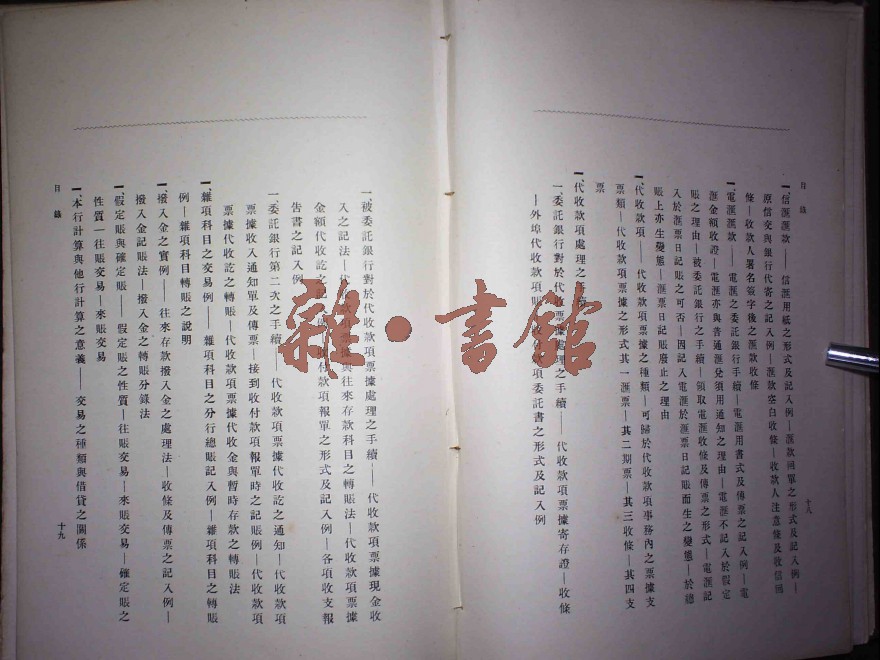 目錄
十八
一、信滙滙款——信滙用紙之形式及記入例—滙款回單之形式及記入例—
原信交與銀行代寄之記入例—滙款空白收條—收款人注意條及收信回
條—收款人署名簽字後之滙款收條
一、電滙滙款——電滙之委託銀行手續—電滙用書式及傳票之記入例—電
滙金額收證—電滙亦與普通滙兌須用通知之理由—電滙不記入於假定
賬之理由—被委託銀行之手續—領取電滙收條及傳票之形式—電滙記
入於滙票日記賬之可否—因記入電滙於滙票日記賬而生之變態—於總
賬上亦生變態—滙票日記賬廢止之理由
一、代收款項——代收款項票據之種類—可歸於代收款項事務內之票據支
票類—代收款項票據之形式其一滙票—其二期票—其三收條—其四支
票
一、代收款項處理之手續
一、委託銀行對於代收票據處理之手續——代收款項票據寄存證—收條
—外埠代收款項賬—收付款項委託書之形式及記入例
一、被委託銀行對於代收款項票據處理之手續——代收款項票據現金收
入之記法—代收款項票據與往來存款科目之轉賬法—代收款項票據
金額代收訖之 付款項報單之形式及記入例—各項收支報
告書之記入例
一、委託銀行第二次之手續——代收款項票據代收訖之通知—代收款項
票據收入通知單及傳票—接到收付款項報單時之記賬例—代收款項
票據代收訖之轉賬—代收款項票據代收金與暫時存款之轉賬法
一、雜項科目之交易例——雜項科目之分行總賬記入例—雜項科目之轉賬
例—雜項科目轉賬之說明
一、撥入金之實例——往來存款撥入金之處理法—收條及傳票之記入例—
撥入金記賬法—撥入金之轉賬分錄法
一、假定賬與確定賬——假定賬之性質—往賬交易—來賬交易—確定賬之
性質—往賬交易—來賬交易
一、本行計算與他行計算之意義——交易之種類與借貸之關係
目錄
十九
雜·書館